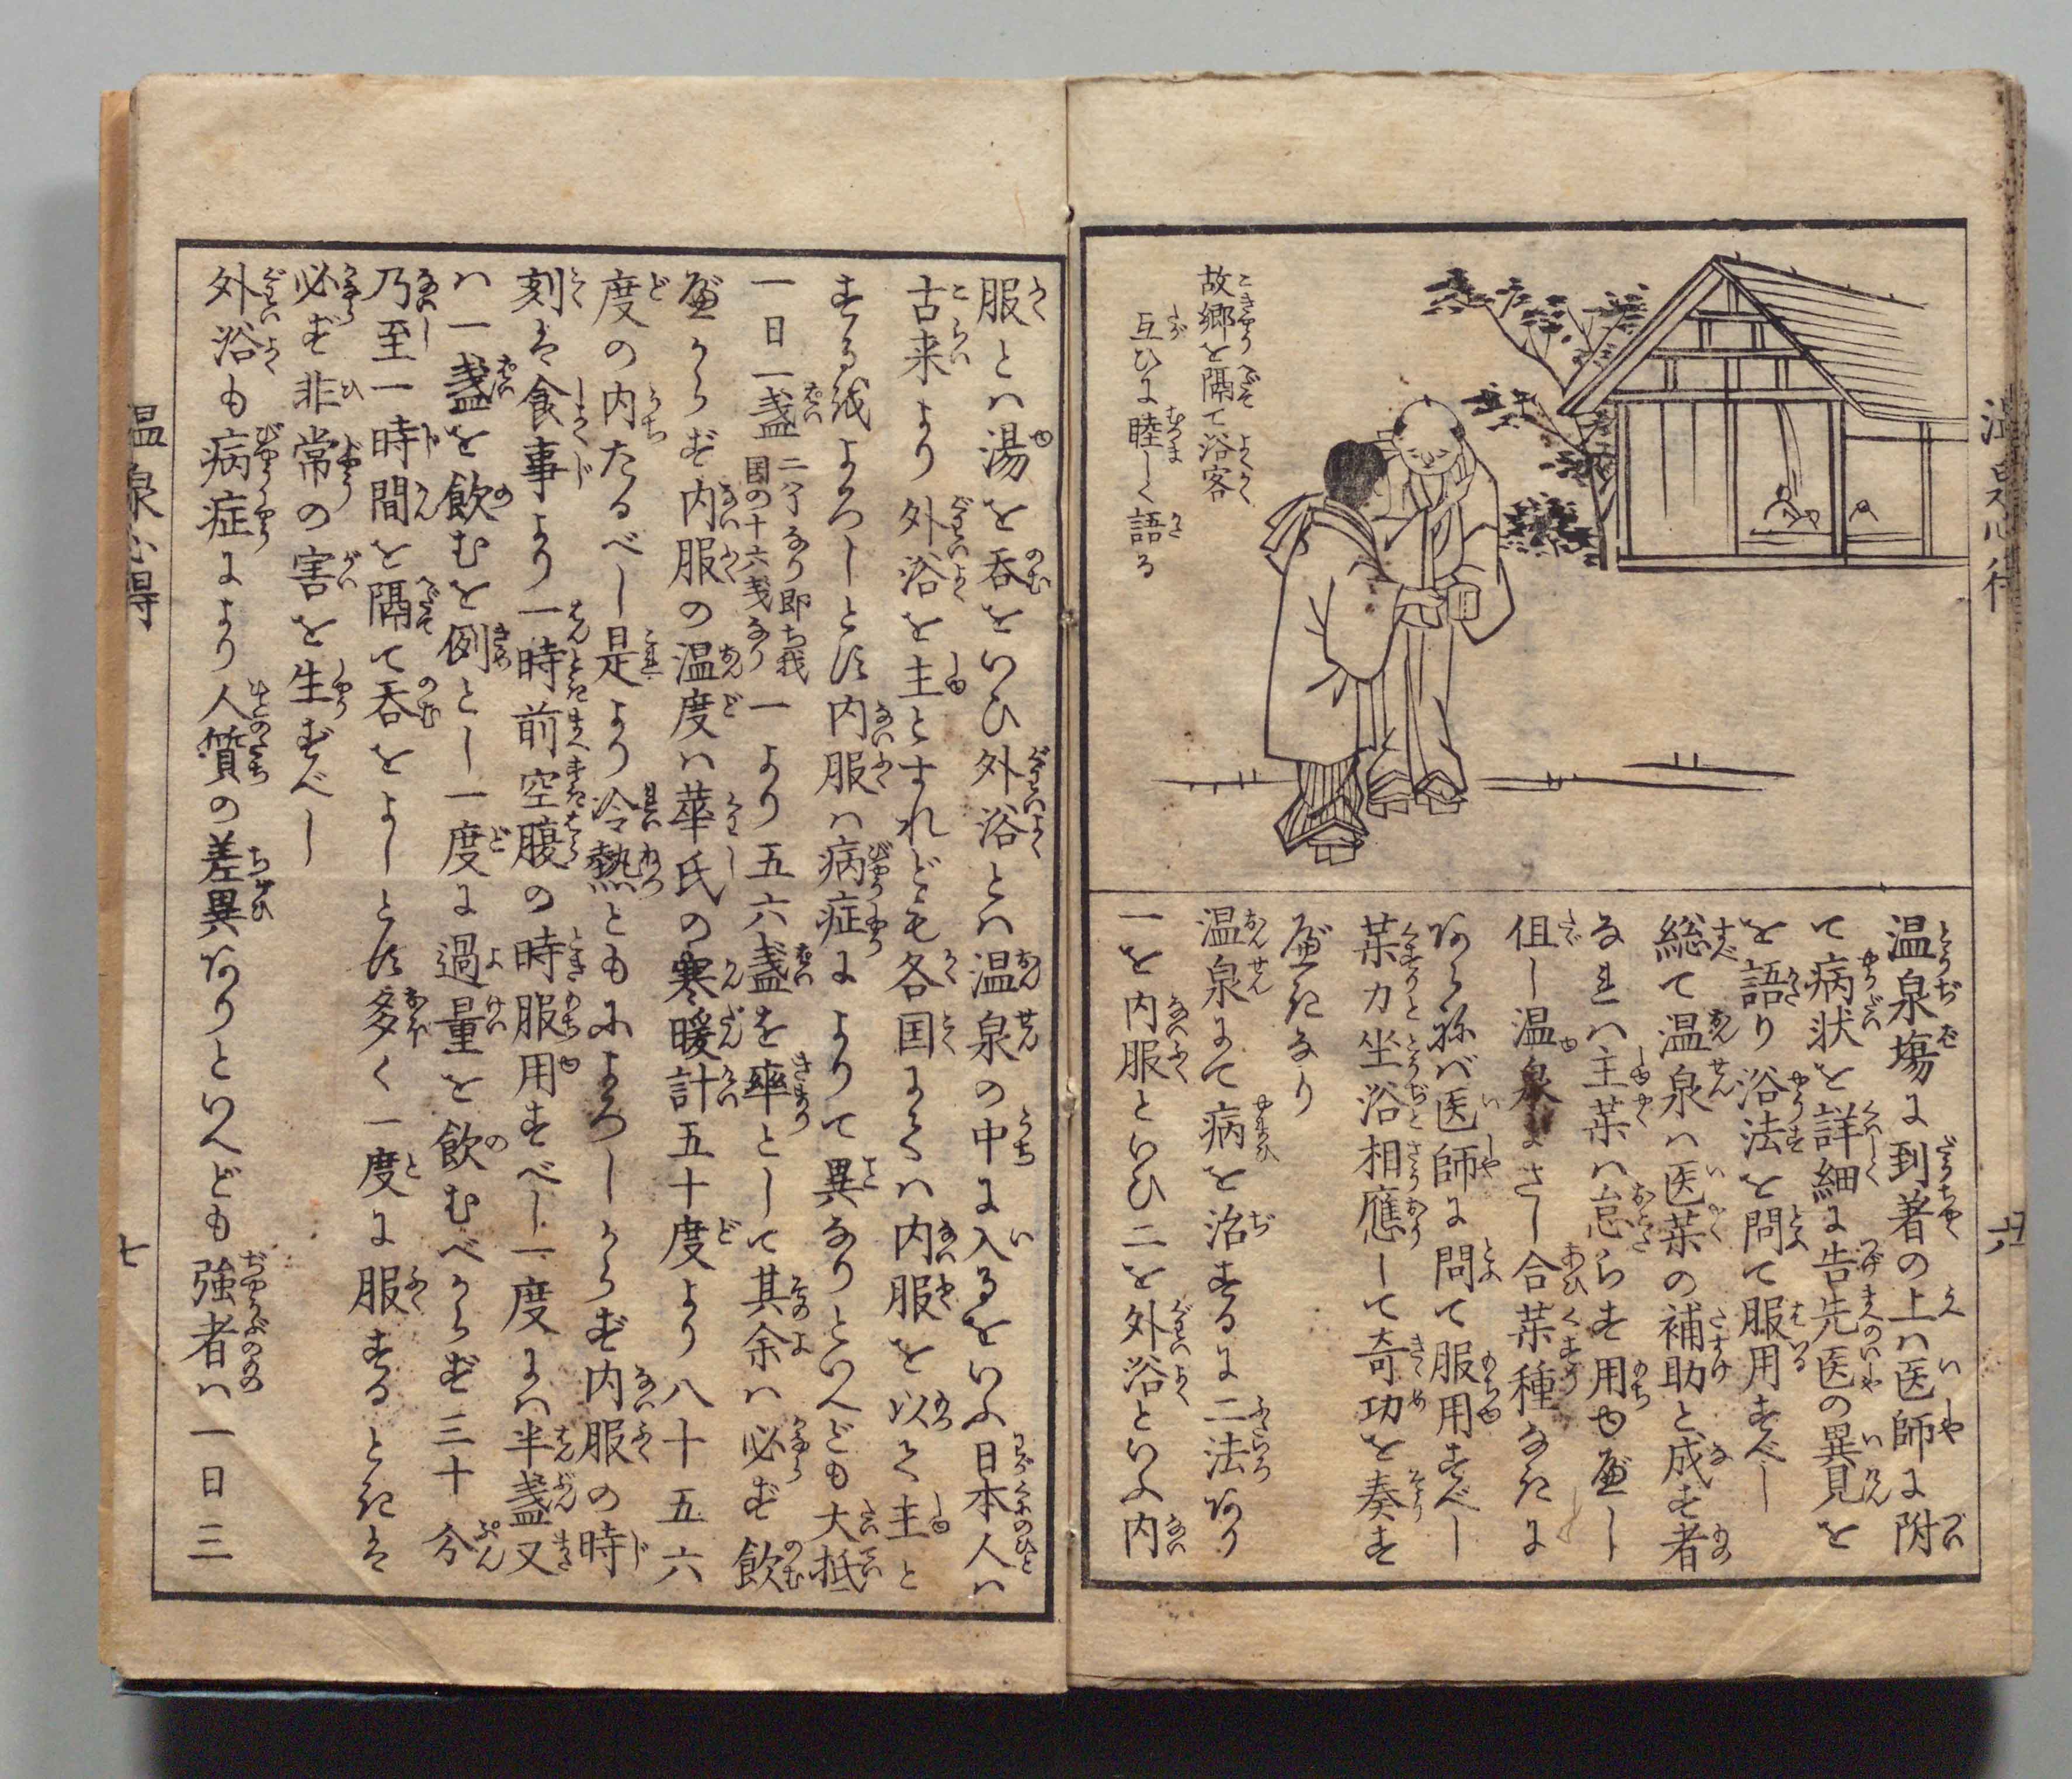 故郷を隔て浴客
互ひに睦しく語る
温泉塲に到著の上ハ医師に附
て病状を詳細に告先医の異見を
を語り浴法を問て服用すべし
総て温泉ハ医薬の補助と成す者
なれハ主薬ハ怠らす用ゆべし
但し温泉にさし合薬種なきに
あらねバ医師に問て服用すべし
薬力坐浴相應して奇功を奏す
べきなり
温泉にて病を治するに二法あり
一を内服といひ二を外浴といふ内
服とハ湯を呑をいひ外浴とハ温泉の中に入るをいふ日本人ハ
古来より外浴を主とすれども各国にてハ内服を以て主と
する故よろしとす内服ハ病症によりて異なりといへども大抵
一日一盞二合なり即ち我国の十六戔なり一より五六盞を率として其余ハ必ず飲
べからず内服の温度ハ華氏の寒暖計五十度より八十五六
度の内たるべし是より冷熱ともによろしからず内服の時
刻は食事より一時前空腹の時服用すべし一度にハ半盞又
ハ一盞を飲むを例とし一度に過量を飲むべからず三十分
乃至一時間を隔て呑をよしとす多く一度に服するときは
必ず非常の害を生ずべし
外浴も病症により人質の差異ありといへども強者ハ一日三
温泉心得
七